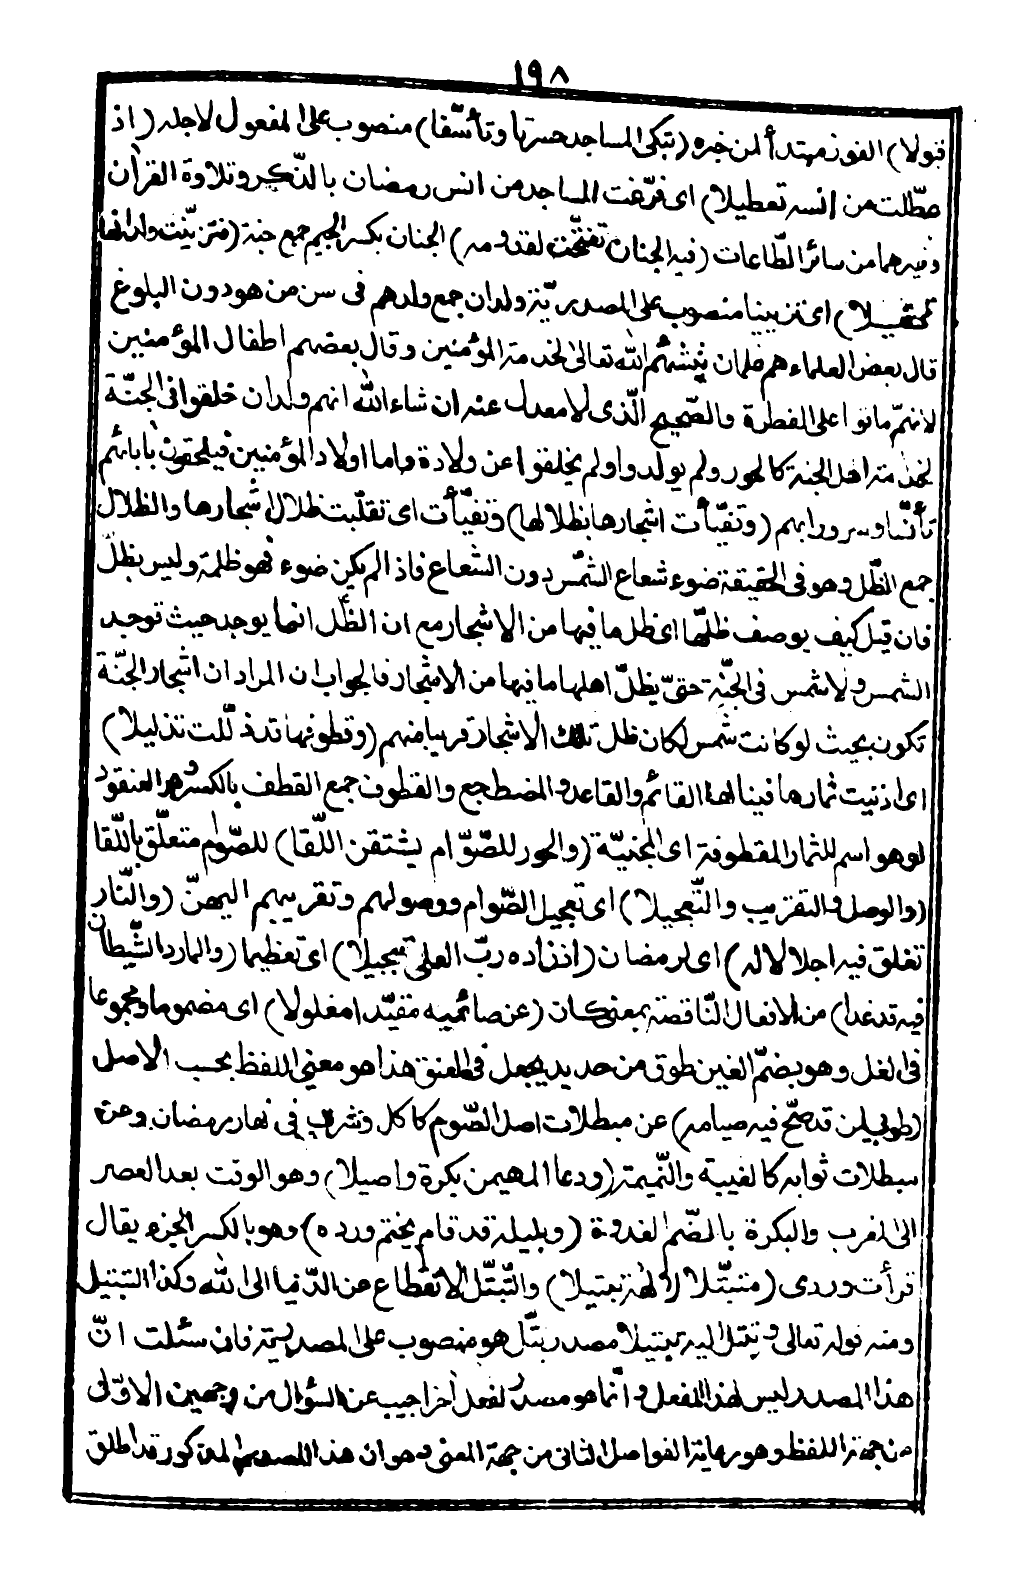 ١٩٨
قبولا) الفوز مبتدأ لمن خبره (تبكى المساجد حسرتها وتأسّفا) منصوب على المفعول لاجله (اذ
عطّلت من انسه تعطيلا) اى فرّغت المساجد من انس رمضان بالذّكر وتلاوة القرأن
وغيرهما من سائر الطّاعات (فيه الجنان تفتّحت لقدومه) الجنان بكسر الجيم جمع جنة (فتزيّنت ولدانها
تحفيلا) اى تزيينا منصوب على المصدريّة ولدان جمع ولدهم فى سن من هو دون البلوغ
قال بعض العلماء هم غلمان ينشئهم الله تعالى لخدمة المؤمنين وقال بعضهم اطفال المؤمنين
لانهم ماتوا على الفطرة والصّحيح الّذى لا معدل عنه ان شاء الله انهم ولدان خلقوا فى الجنّة
لخدمة اهل الجنة كالحور ولم يولدوا ولم يخلقوا عن ولادة واما اولاد المؤمنين فيلحقون بأبائهم
تأنّسا وسرورا بهم (وتفيّأت اشجارها بظلالها) وتفيّأت اى تقلّبت ظلال اشجارها والظلال
جمع الظّل وهو فى الحقيقة ضوء شعاع الشّمس دون الشعاع فاذا لم يكن ضوء فهو ظلمة وليس بظلّ
فان قيل كيف يوصف ظلّها اى ظل ما فيها من الاشجار مع ان الظّل انما يوجد حيث توجد
الشمس ولا شمس فى الجنّة حتّى يظلّ اهلها ما فيها من الاشجار فالجواب ان المراد ان اشجار الجنّة
تكون بحيث لو كانت شمس لكان ظل تلك الاشجار قريبا منهم (وقطوفها قد ذلّلت تذليلا)
اى ادنيت ثمارها فينالها القائم والقاعد والمضطجع والقطوف جمع القطف بالكسر وهو العنقود
وهو اسم للثمار المقطوفة اى المجنيّة (والحور للصّوّام يشتقن اللّقا) للصّوام متعلّق باللّقا
(والوصل والتقريب والتّعجيلا) اى تعجيل الصّوام ووصولهم وتقريبهم اليهنّ (والنّار
تغلق فيه اجلالا له) اى لرمضان (اذ زاده ربّ العلى تبجيلا) اى تعظيما (والمارد الشّيطان
فيه قد غدا) من الافعال النّاقصة بمعنى كان (عن صائميه مقيّدا مغلولا) اى مضموما ومجموعا
فى الغل وهو بضمّ الغين طوق من حديد يجعل فى العنق هذا هو معنى اللفظ بحسب الاصل
(طوبى لمن قد صحّ فيه صيامه) عن مبطلات اصل الصّوم كاكل وشرب فى نهار رمضان وعن
مبطلات ثوابه كالغيبة والنّميمة (ودعا المهيمن بكرة واصيلا) وهو الوقت بعد العصر
الى المغرب والبكرة بالضّم الغدوة (وبليله قد قام يختم ورده) وهو بالكسر الجزء يقال
قرأت وردى (متبتّلا لإلهه تبتيلا) والتّبتّل الانقطاع عن الدّنيا الى الله وكذا التبتيل
ومنه قوله تعالى وتبتل اليه تبتيلا مصدر بتّل هو منصوب على المصدريّة فان سئلت انّ
هذا المصدر ليس لهذا الفعل وانّما هو مصدر لفعل أخر اجيب عن السؤال من وجهين الاوّل
من جهة اللفظ وهو رعاية الفواصل الثانى من جهة المعنى وهو ان هذا المصدر المذكور قد اطلق